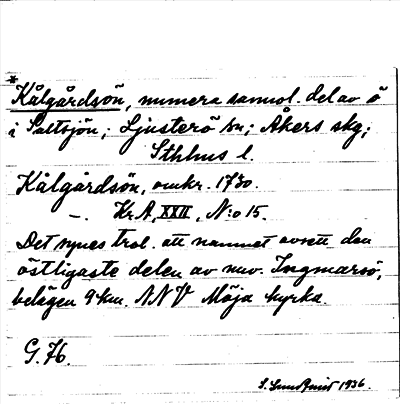 *
Kålgårdsön, numera sannol. del av ö
i Saltsjön; Ljusterö sn; Åkers skg;
Sthlms l.
Kålgårdsön, omkr. 1730.
—. Kr.A, XXII, N:o 15.
Det synes trol. att namnet avsett den
östligaste delen av nuv. Ingmarsö,
belägen 9 km. NNV Möja kyrka.
G. H.
S. Sundquist 1936.